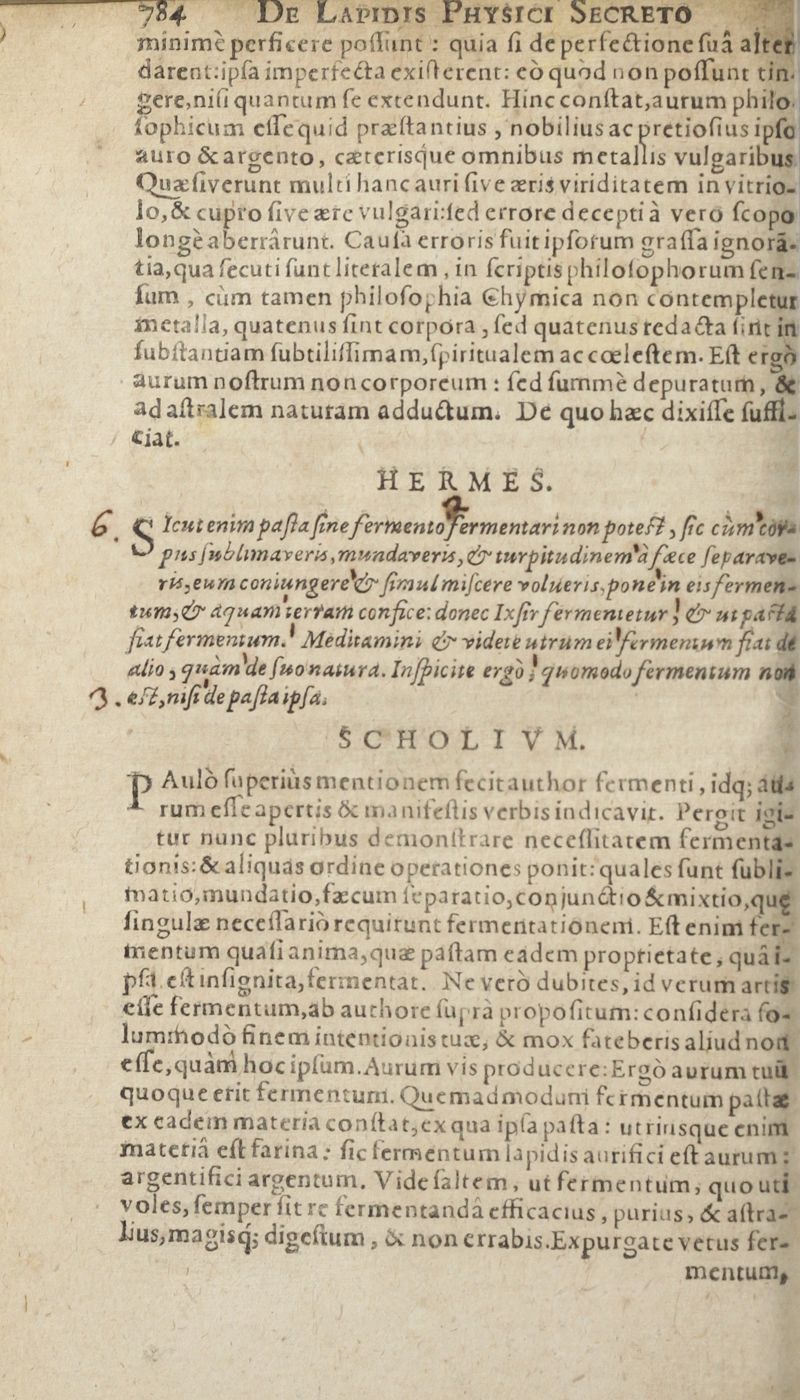 784 DE LAPIDIS PHYSICI SECRETO
minimè perficere poſſunt : quia ſi de perfectione ſuâ alter
darent: ipſa imperfecta exiſterent: eò quòd non poſſunt tin-
gere, niſi quantum ſe extendunt. Hinc conſtat, aurum philo
ſophicum eſſe quid præſtantius, nobilius ac pretioſius ipſo
auro & argento, cæterisque omnibus metallis vulgaribus
Quæſiverunt multi hanc auri ſive æris viriditatem in vitrio-
lo, & cupro ſive ære vulgari: ſed errore decepti à vero ſcopo
longè aberrârunt. Cauſa erroris fuit ipſorum graſſa ignorã-
tia, qua ſecuti ſunt literalem, in ſcriptis philoſophorum ſen-
ſum, cùm tamen philoſophia Chymica non contempletur
metalla, quatenus ſint corpora, ſed quatenus redacta ſint in
ſubſtantiam ſubtiliſſimam, ſpiritualem ac cœleſtem. Eſt ergò
aurum noſtrum non corporeum : ſed ſummè depuratum, &
ad aſtralem naturam adductum. De quo hæc dixiſſe ſuffi-
ciat.
HERMES.
6. SIcut enim paſta ſine fermento fermentari non poteſt, ſic cùm cor-
pus ſublimaveris, mundaveris, & turpitudinem à fæce ſeparave-
ris, eum coniungere & ſimul miſcere volueris, pone in eis fermen-
tum, & aquam terram confice: donec Ixſir fermentetur, & ut paſta
fiat fermentum. Meditamini & videte utrum ei fermentum fiat de
alio, quàm de ſuo natura. Inſpicite ergò, quomodo fermentum non
3. eſt, niſi de paſta ipſa.
SCHOLIVM.
PAulò ſuperiùs mentionem fecit author fermenti, idq; au-
rum eſſe apertis & manifeſtis verbis indicavit. Pergit igi-
tur nunc pluribus demonſtrare neceſſitatem fermenta-
tionis: & aliquas ordine operationes ponit: quales ſunt ſubli-
matio, mundatio, fæcum ſeparatio, conjunctio & mixtio, quę
ſingulæ neceſſariò requirunt fermentationem. Eſt enim fer-
mentum quaſi anima, quæ paſtam eadem proprietate, quâ i-
pſa eſt inſignita, fermentat. Ne verò dubites, id verum artis
eſſe fermentum, ab authore ſuprà propoſitum: conſidera ſo-
lummodò finem intentionis tuæ, & mox fateberis aliud non
eſſe, quàm hoc ipſum. Aurum vis producere: Ergò aurum tuũ
quoque erit fermentum. Quemadmodum fermentum paſtæ
ex eadem materia conſtat, ex qua ipſa paſta : utriusque enim
materiâ eſt farina: ſic fermentum lapidis aurifici eſt aurum :
argentifici argentum. Vide ſaltem, ut fermentum, quo uti
voles, ſemper ſit re fermentandâ efficacius, purius, & aſtra-
lius, magisq; digeſtum, & non errabis. Expurgate vetus fer-
mentum,